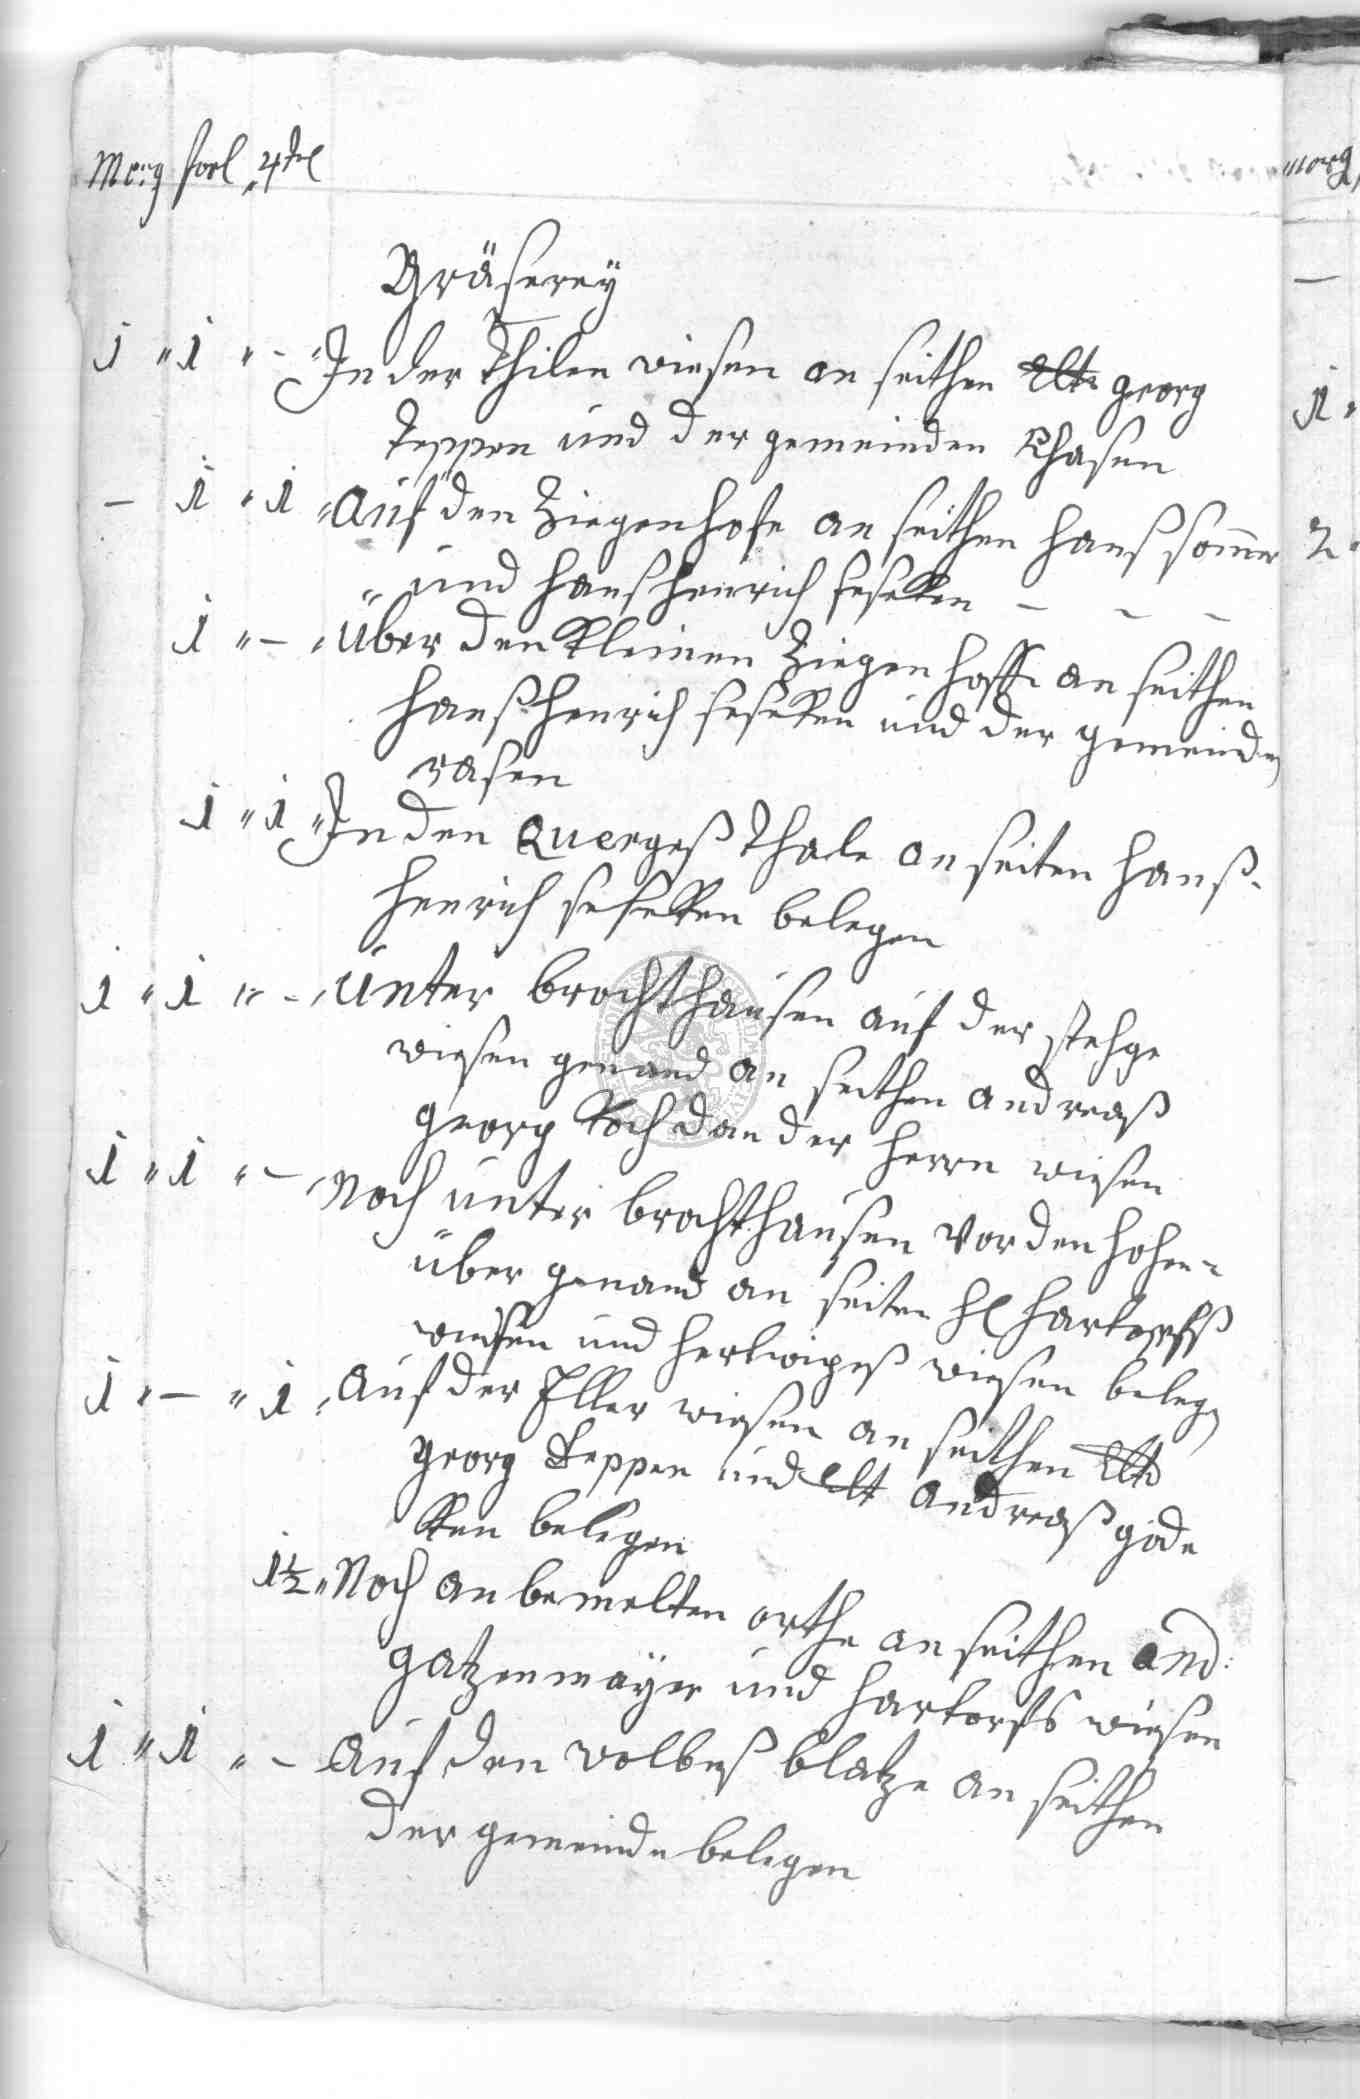 Morg forl 4tel
Gräserey
1 " 1 " - " In der Thilen wiesen an seithen Elte georg
Teppen und der gemeinden Rhasen
- 1 " 1 " Auf den Ziegenhofe an seithen Hanß Somer
" und Hanß Henrich Feseken - - -
1 " - " Über den kleinen Ziegen hoffe an seithen
Hanß Henrich Feseken und der gemeinden
rasen
1 " 1 " In den Quergeß Thale an seiten Hanß-
Henrich Feseken belegen
1 " 1 " - " Unter brochthausen auf der
wiesen genand an seithen Andreaß
georg Koch dan der Herrn wiesen
1 " 1 " - " Noch unter brochthausen vor den hohen-
über genand an seiten H Hartorffß
wiesen und Hertwigeß wiesen belegen
1 " - " 1 " Auf der Eller wiesen an seithen Elte
georg Teppen und Elt Andreaß göde
ken belegen
1½ " Noch an bemelten orthe an seithen And:
gatzenmeyer und Hartorffs wiesen
1 " 1 " - Auf den wolbeß blatze an seithen
der gemeinde belegen
morg
-
1 "
2 "